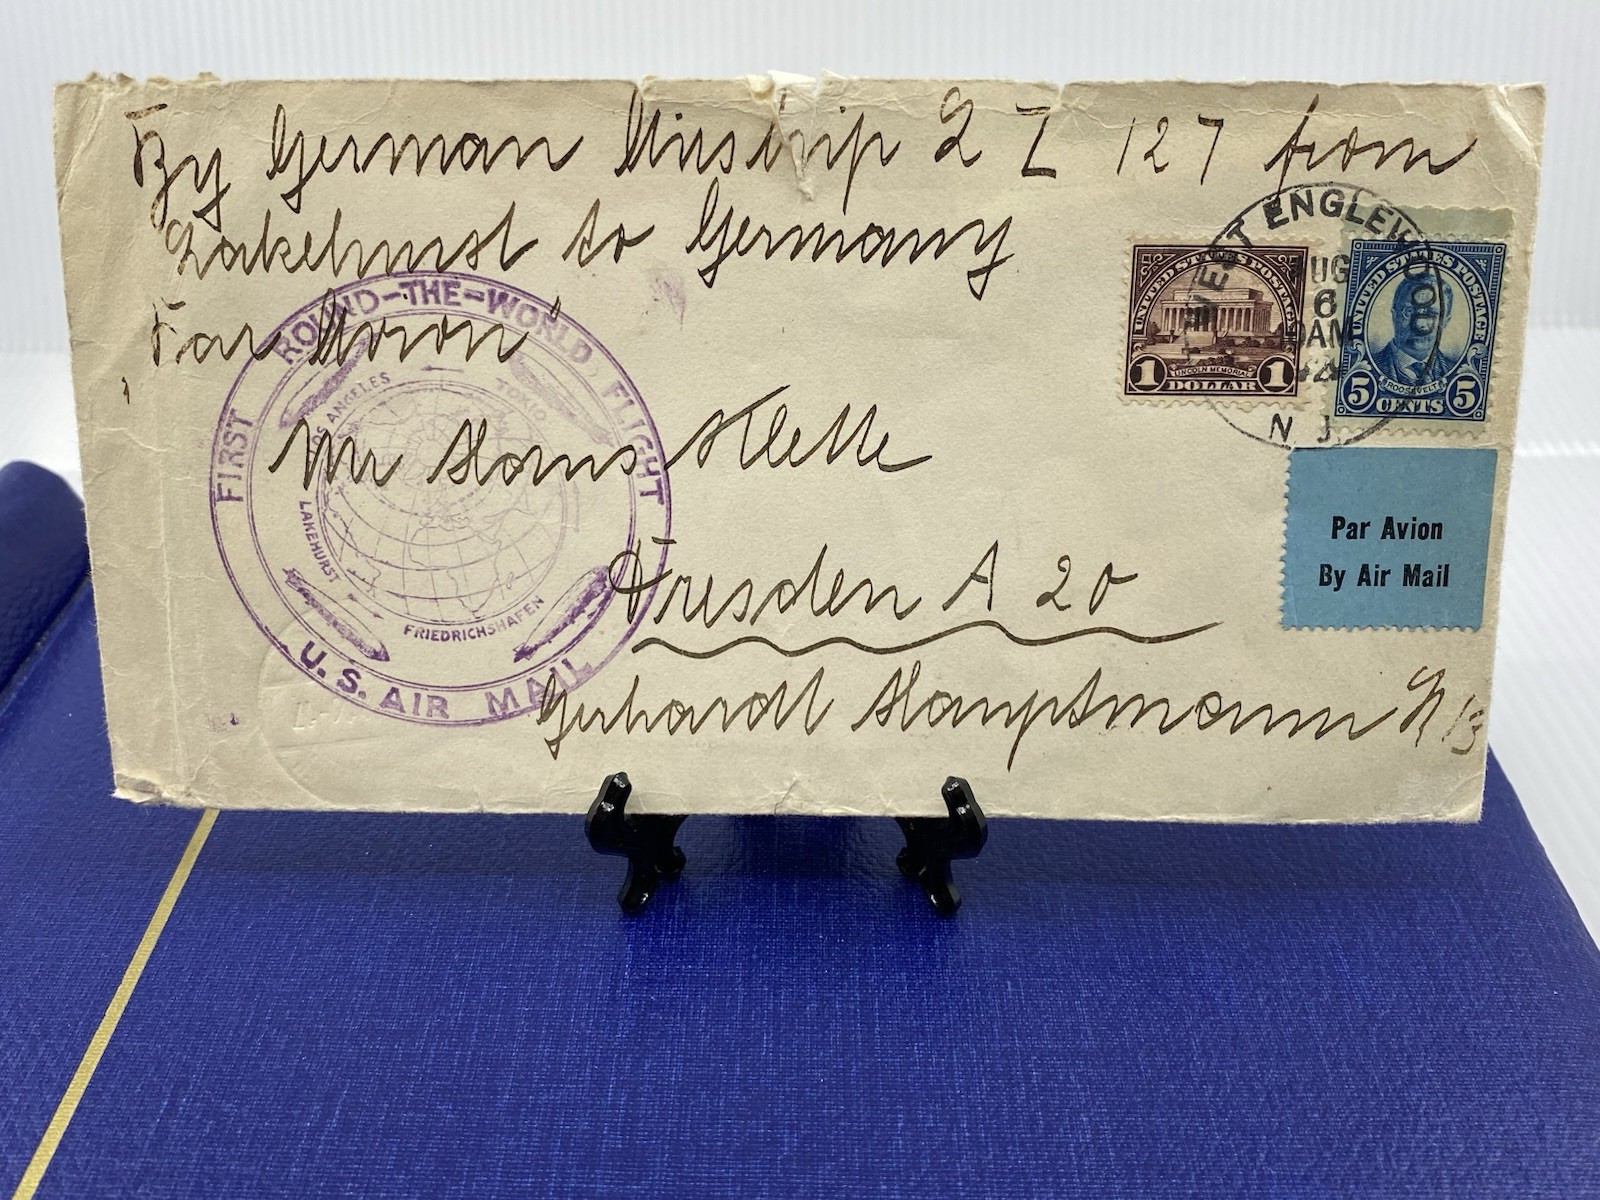 By German Airship L Z 127 from
Lakehurst to Germany
"Par Avion"
Mr Hans Klette
Dresden A 20
Gerhardt Hauptmann
13
FIRST ROUND-THE-WORLD FLIGHT
U.S. AIR MAIL
LOS ANGELES
TOKIO
LAKEHURST
FRIEDRICHSHAFEN
WEST ENGLEWOOD
AUG
6
AM
N J.
UNITED STATES POSTAGE
LINCOLN MEMORIAL
1 DOLLAR 1
UNITED STATES POSTAGE
ROOSEVELT
5 CENTS 5
Par Avion
By Air Mail